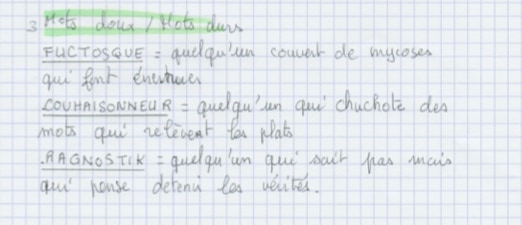 3 Mots doux / Mots durs
FUCTOSQUE = quelqu'un couvert de mycoses
qui font éternuer
LOUHAISONNEUR = quelqu'un qui chuchote des
mots qui relèvent les plats
RAGNOSTIK = quelqu'un qui sait pas mais
qui pense detenir les vérités.